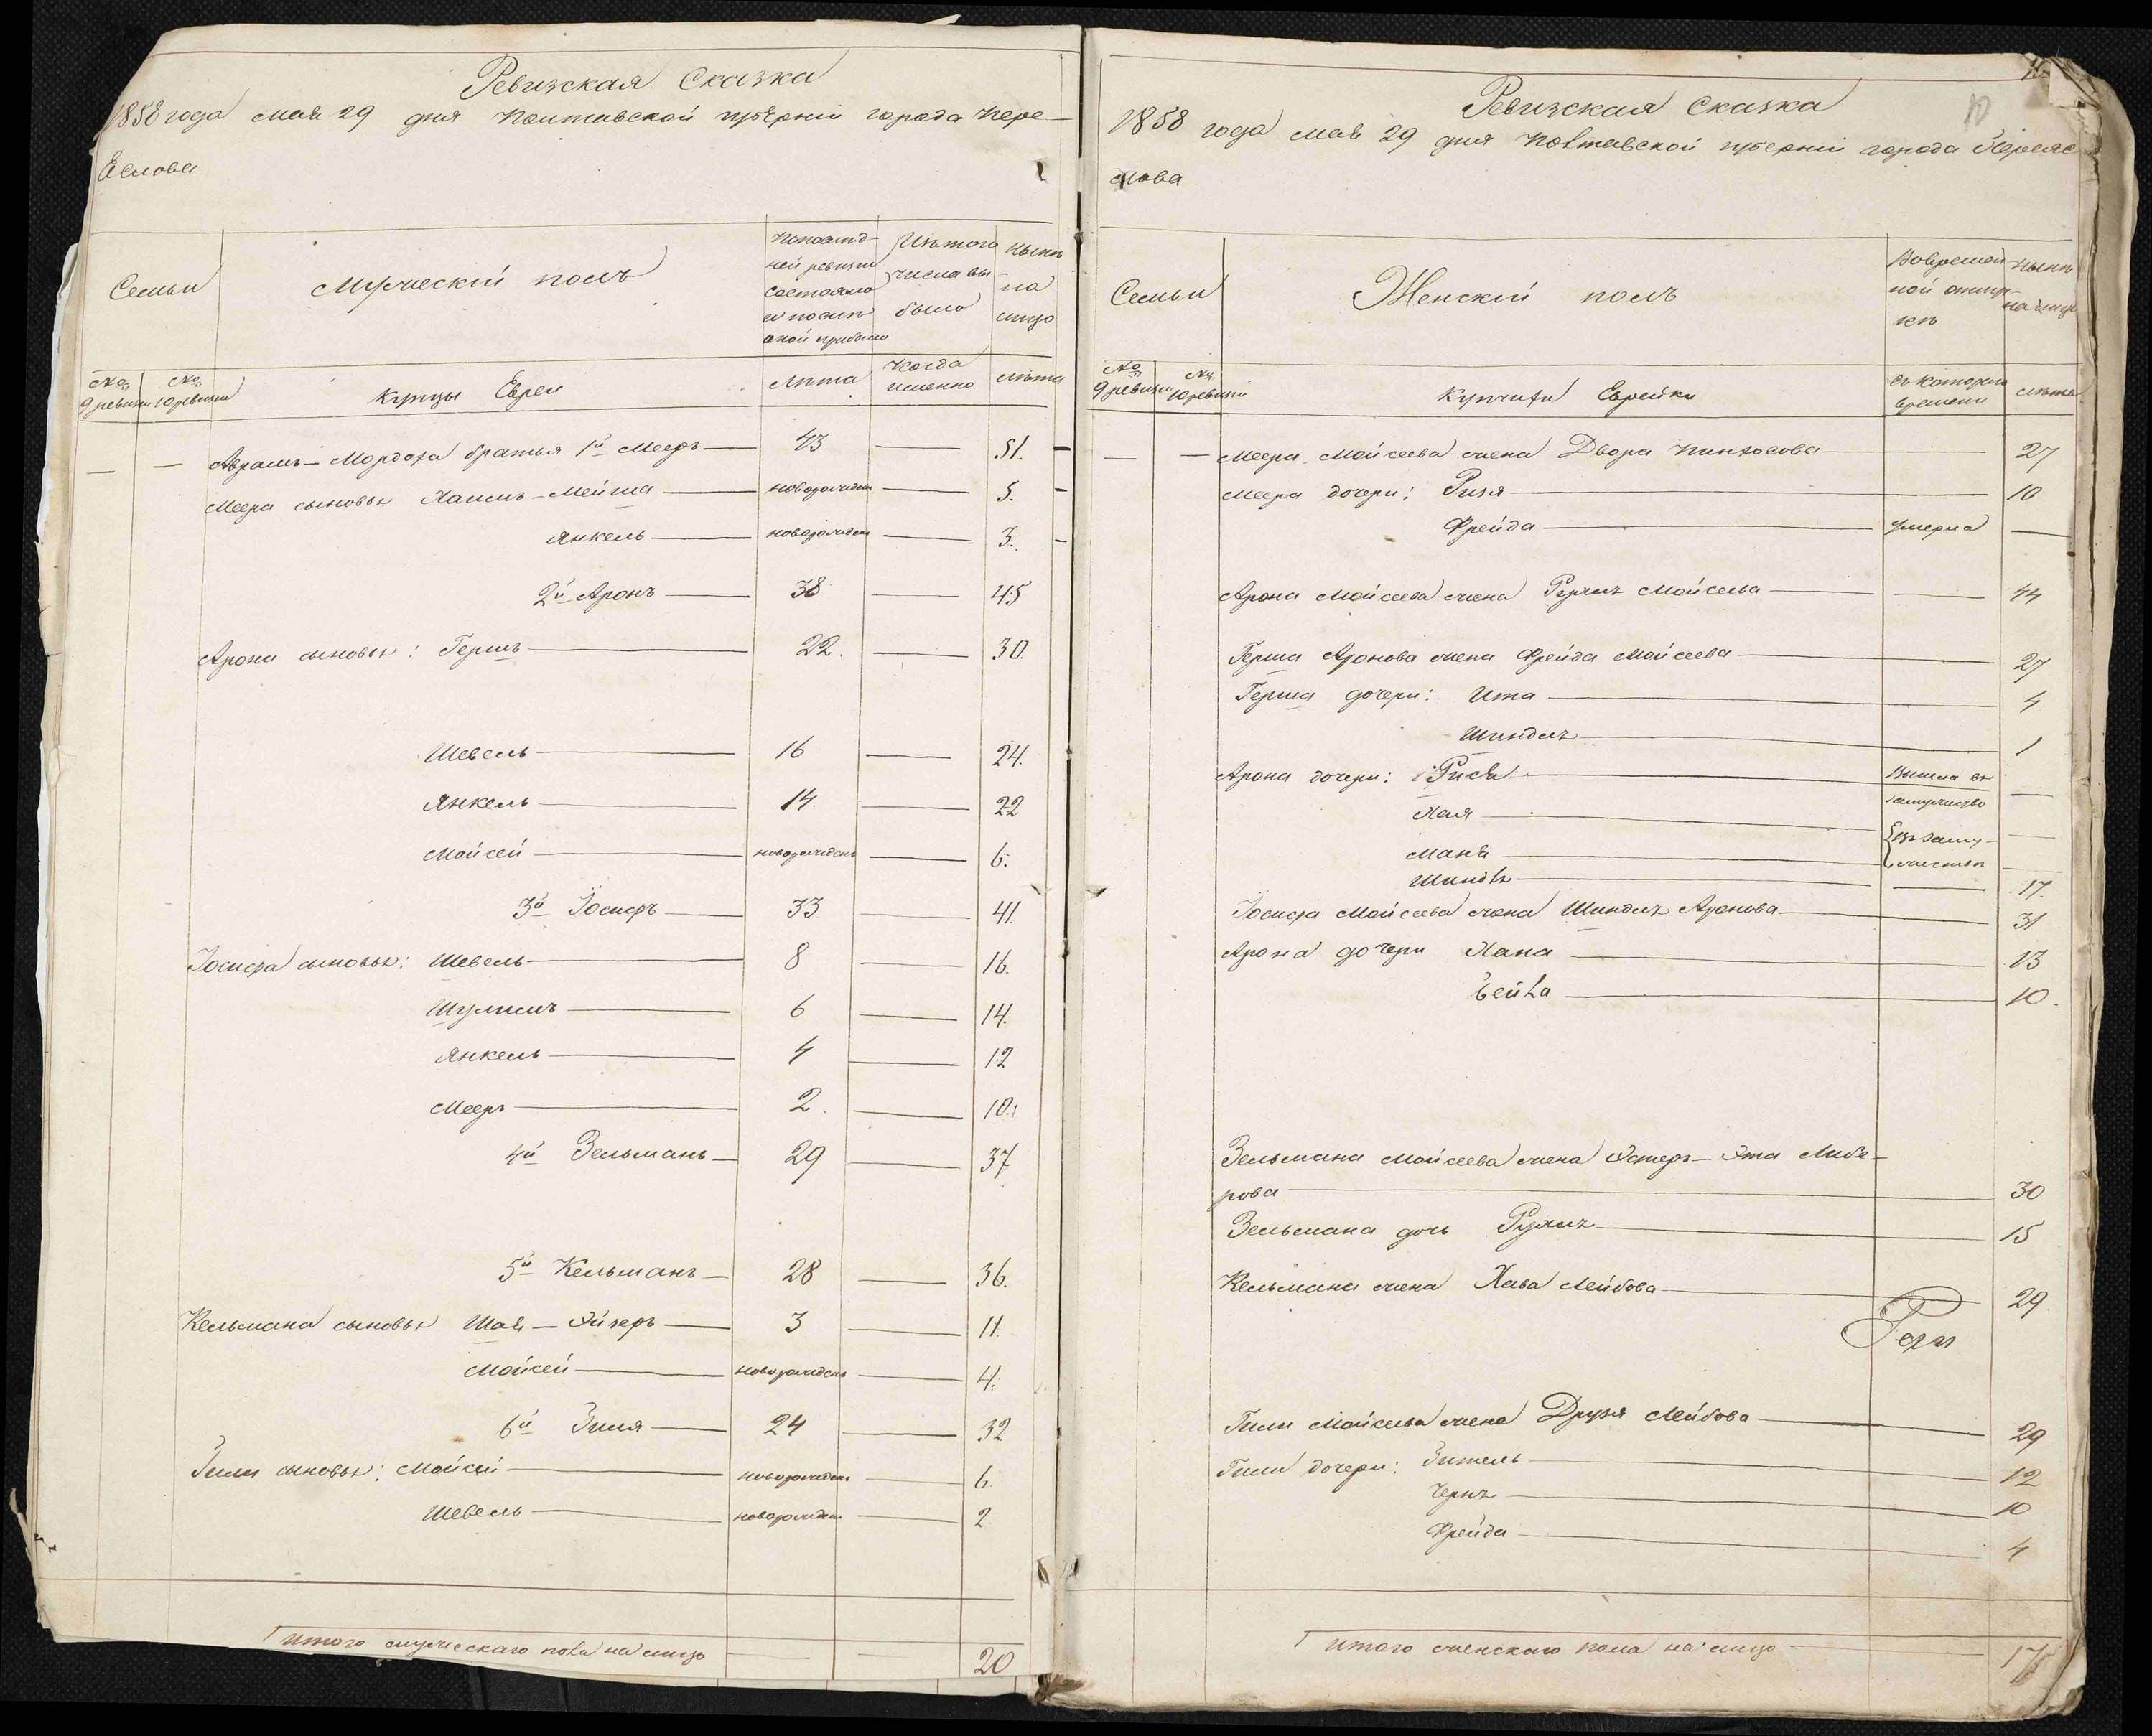 Ревизская Сказка
1858 года мая 29 дня Полтавской губерніи города Пере-
еслова
Семьи
Мужескій полъ
По послѣд-
ней ревизіи
состояло
и послѣ
оной прибыло
Изъ того
числа вы-
было
Нынѣ
на
лицо
№ 9 ревизіи
№ 10 ревизіи
Купцы Евреи
Лѣта
Когда
именно
Лѣта
— — Аврамъ-Мордоха братья 1й Мееръ — 43 — 51. —
Меера сыновья Хаимъ-Мейта — новорожденъ — 5. —
Янкель — новорожденъ — 3. —
2й Аронъ — 38 — 45
Арона сыновья: Гершъ — 22. — 30.
Шевель — 16 — 24.
Янкель — 14. — 22
Мойсей — новорожденъ — 6.
3й Іосифъ — 33 — 41.
Іосифа сыновья: Шевель — 8 — 16.
Шулимъ — 6 — 14.
Янкель — 4 — 12
Мееръ — 2. — 10.
4й Зельманъ — 29 — 37
5й Кельманъ — 28 — 36.
Кельмана сыновья Шая-Эйзеръ — 3 — 11.
Мойсей — новорожденъ — 4.
6й Зиля — 24 — 32
Зили сыновья: Мойсей — новорожденъ — 6.
Шевель — новорожденъ — 2
Итого мужескаго пола на лицо — — 20
10
Ревизская Сказка
1858 года мая 29 дня Полтавской губерніи города Переяс
лова
Семьи
Женскій полъ
Во времен-
ной отлуч-
кѣ
Нынѣ
на лицо
№ 9 ревизіи
№ 10 ревизіи
Купчихи Еврейки
Съ котораго
времени
Лѣта
— — Меера Мойсеева жена Двора Пинхосова — — 27
Меера дочери: Рися — 10
Фрейда — умерла —
Арона Мойсеева жена Рухль Мойсеева — — 44
Герша Аронова жена Фрейда Мойсеева — 27
Герша дочери: Ита — 4
Шиндля — 1
Арона дочери: Рися — вышла въ
замужство —
Хая — {въ заму- —
Маня — {жествѣ —
Шиндля — — 17.
Іосифа Мойсеева жена Шиндля Аронова — 31
Арона дочери Хана — 13
Бейла — 10.
Зельмана Мойсеева жена Эстеръ-Эта Либе-
рова — 30
Зельмана дочь Рухля — 15
Кельмана жена Хава Лейбова — 29.
Гили Мойсеева жена Друзя Лейбова — 29
Гили дочери: Зитель — 12
Черня — 10
Фрейда — 4
Итого женскаго пола на лицо — 17